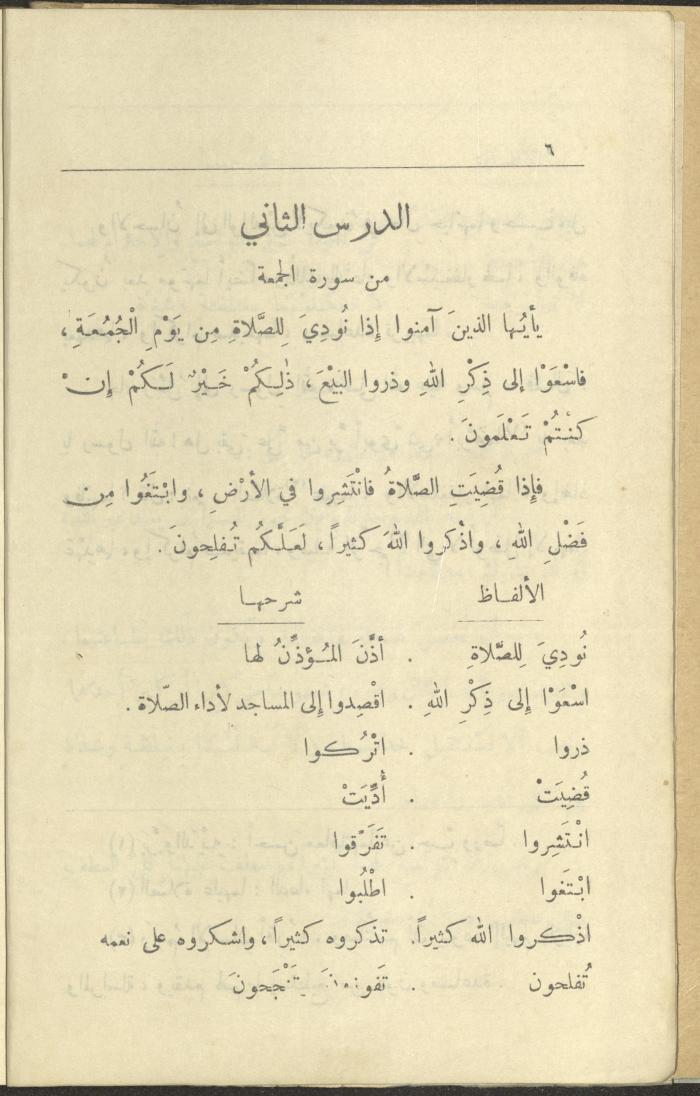 ٦
الدرس الثاني
من سورة الجمعة
يأيُها الذينَ آمنوا إذا نُودِيَ لِلصَّلاةِ مِن يَوْمِ الْجُمُعَةِ ،
فاسْعَوْا إلى ذِكْرِ اللهِ وذروا البَيْعَ ، ذٰلِكُمْ خَيْرٌ لَكُمْ إِنْ
كنتُمْ تَعْلَمونَ .
فإذا قُضِيَتِ الصَّلاةُ فانْتَشِروا في الأرْضِ ، وابْتَغُوا مِن
فَضْلِ اللهِ ، واذْكروا اللهَ كثيراً ، لَعَلَّكُم تُفلِحونَ .
الألفاظ شرحها
نُودِيَ لِلصَّلاةِ . أذَّنَ المُؤذِّنُ لها
اسْعَوْا إلى ذِكْرِ اللهِ . اقْصِدوا إلى المساجد لأداء الصّلاة .
ذروا . اتْرُكوا
قُضِيَتْ . أُدِّيَتْ
انْتَشِروا . تَفَرَّقوا
ابْتَغوا . اطْلُبوا
اذْكروا الله كثيراً . تذكروه كثيراً ، واشكروه على نعمه
تُفلحون . تَنْجَحونَ